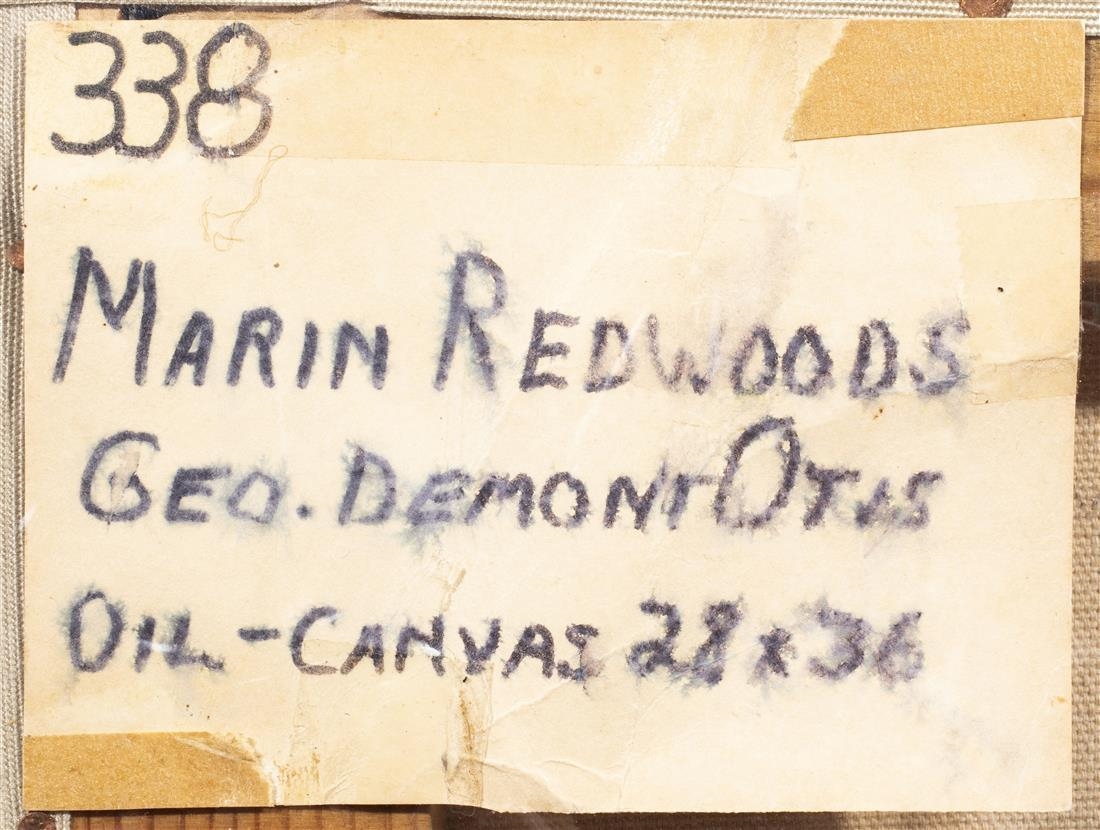 338
MARIN REDWOODS
GEO. DEMONT OTIS
OIL - CANVAS 28 x 36